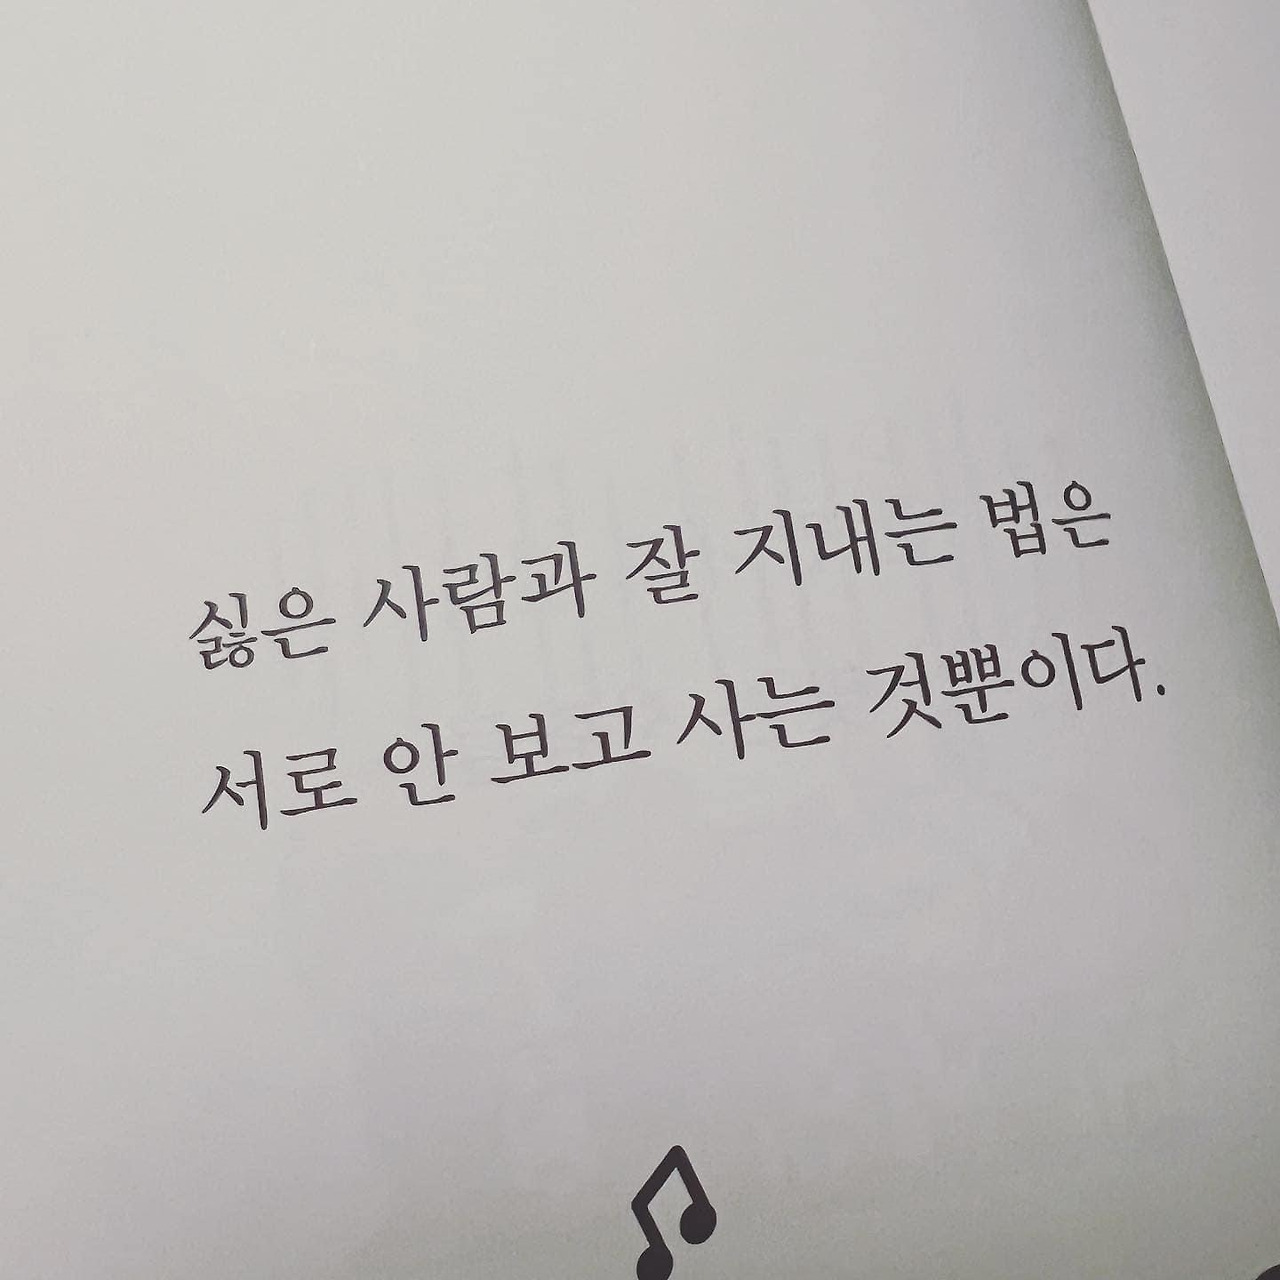 싫은 사람과 잘 지내는 법은
서로 안 보고 사는 것뿐이다.